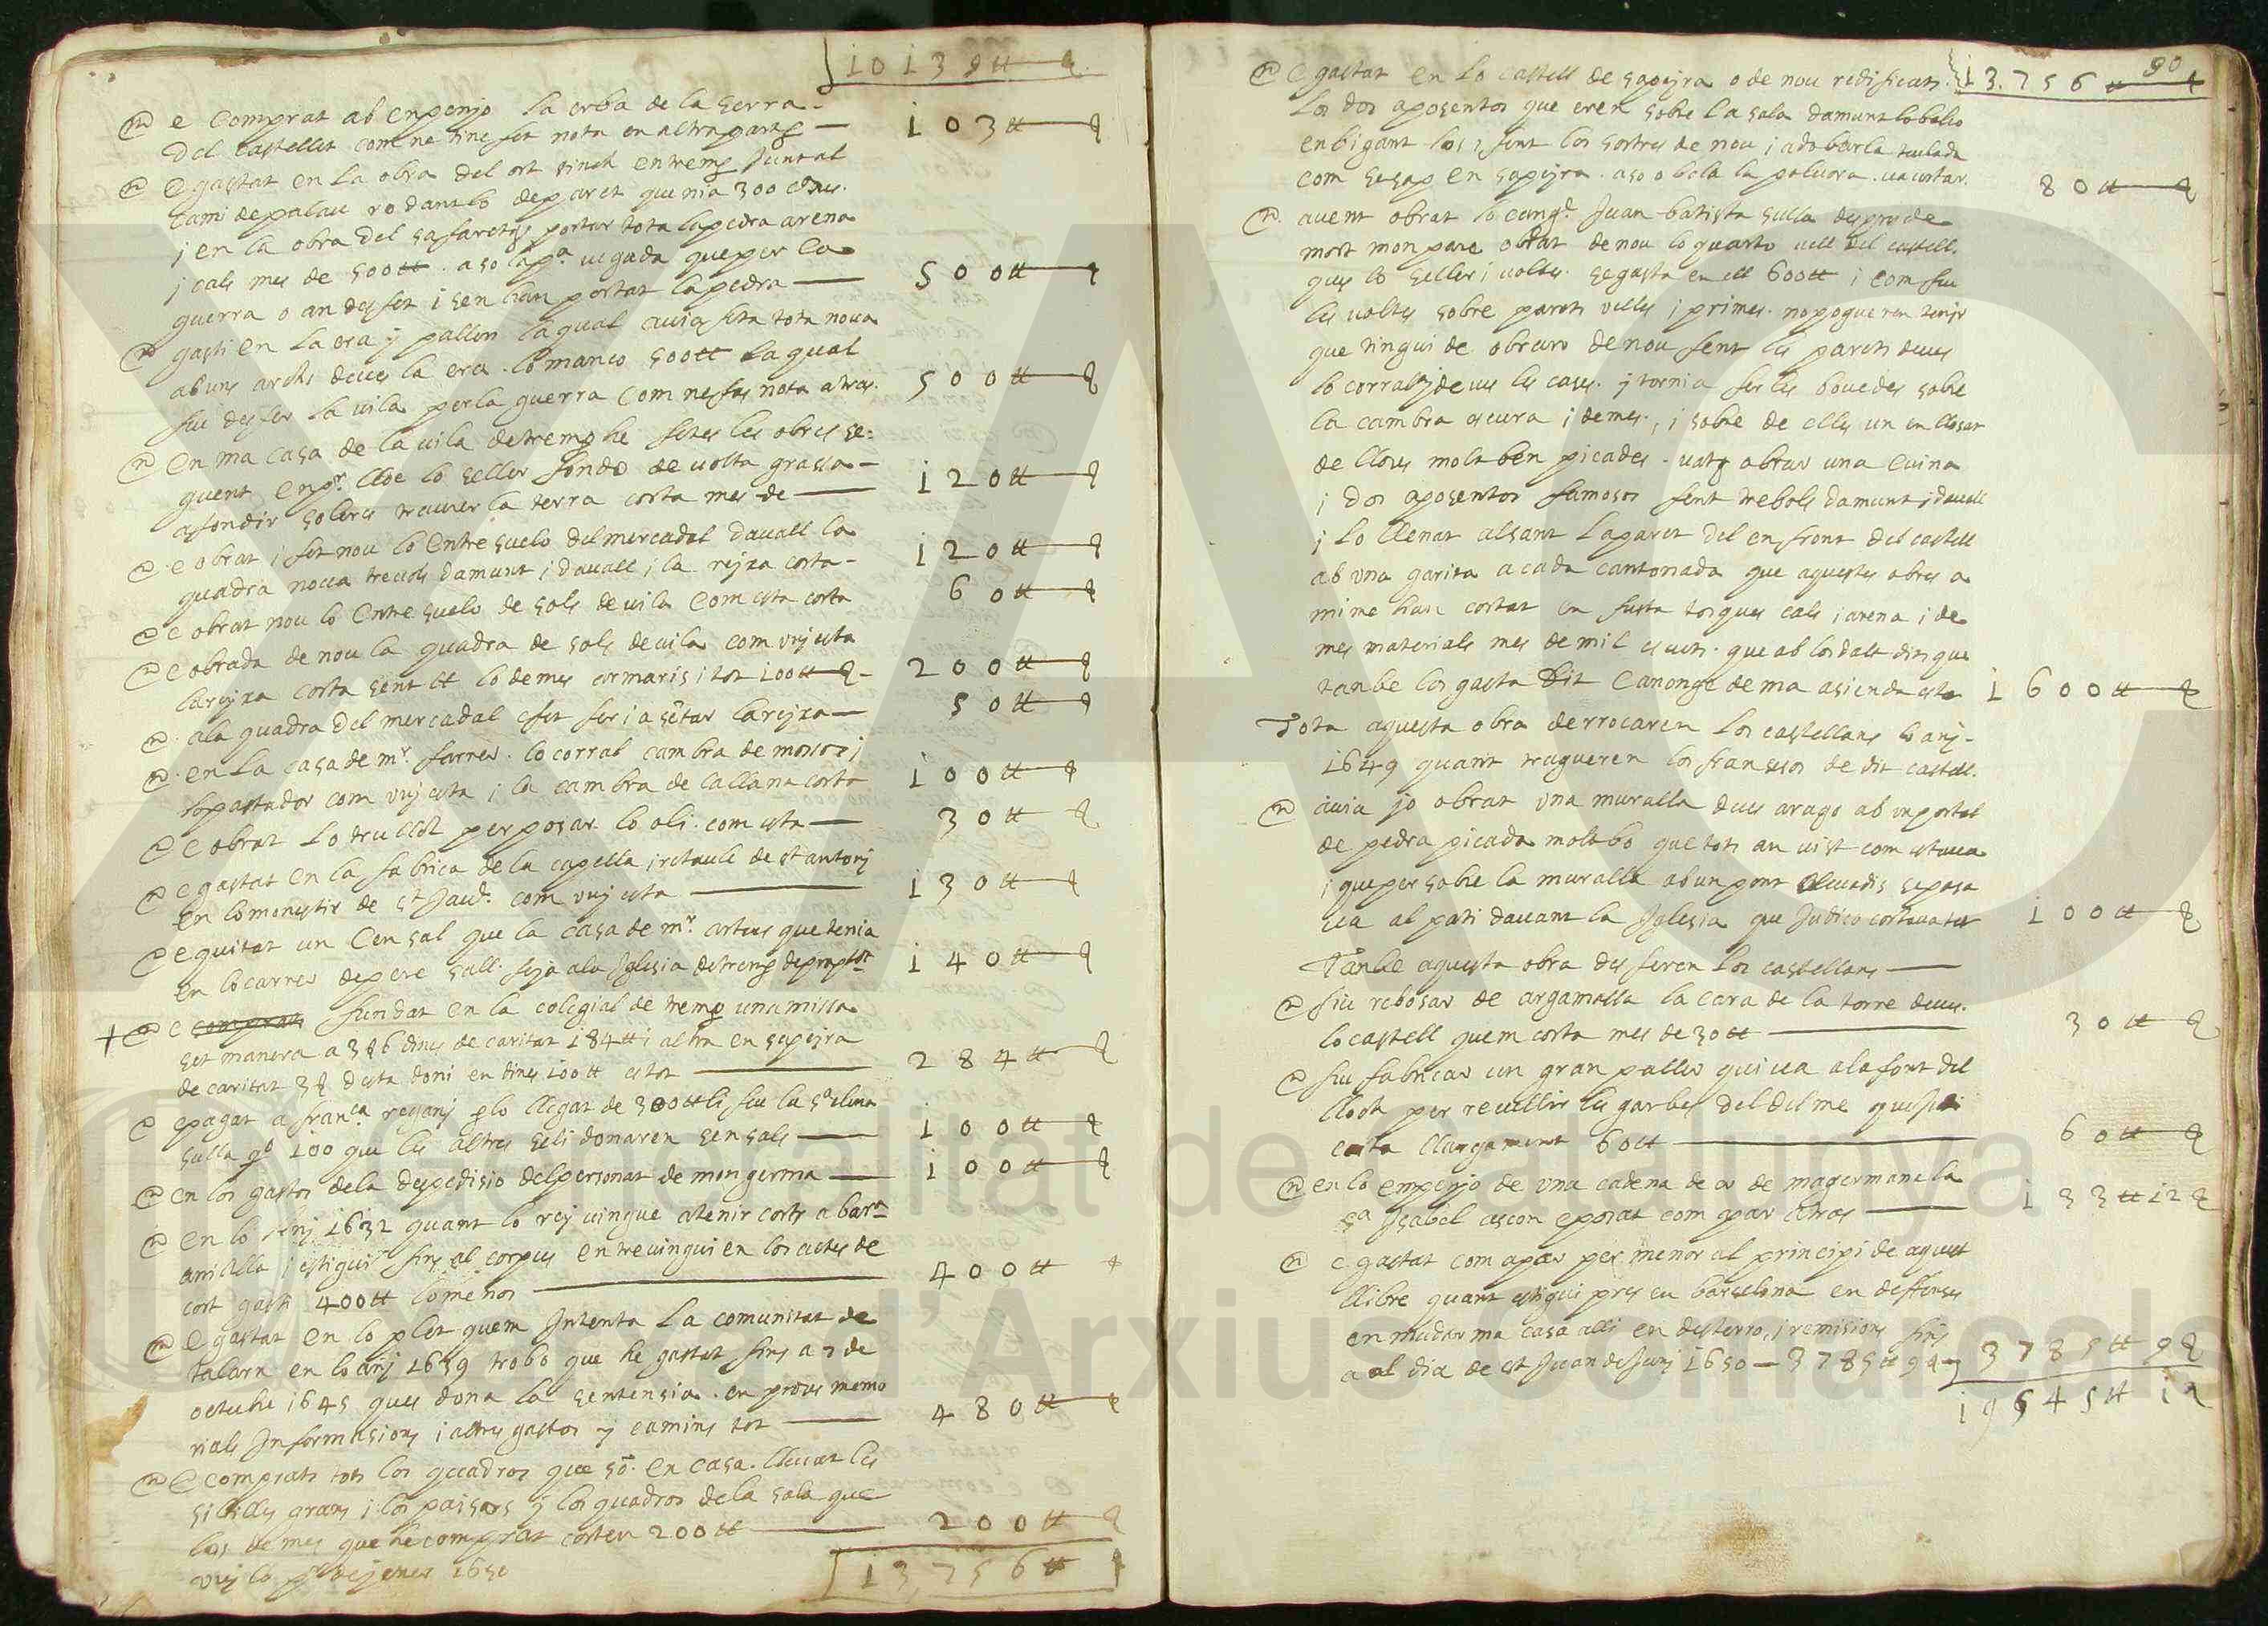 10139 tt — ҙ
e comprat ab enpenjo la erba de la serra
del castellet com ne tinc fet nota en altra part — 103 tt — ҙ
e gastat en la obra del ort sinch entrems junt al
cami de palau rodantlo de paret que nia 300 canes
i en la obra del safaretgs portar tota la pedra arena
i cals mes de 500 tt aso la pª vegada que per la
guerra o an desfet i sen han portat la pedra — 500 tt — ҙ
gasti en la era y paller la qual avia feta tota nova
ab uns archs deves la era lo manco 500 tt la qual
feu desfer la vila per la guerra com ne fas nota atras 500 tt — ҙ
en ma casa de la vila de tremp he fetes les obres se-
guent en pr lloc lo seller fondo de volta grassa
afondir soleres traurer la terra costa mes de — 120 tt — ҙ
e obrat i fet nou lo entresuelo del mercadal davall la
quadra nova trevols damunt i davall i la rejxa costa 120 tt — ҙ
e obrat nou lo entresuelo de sols de vila com esta costa 60 tt — ҙ
e obrada de nou la quadra de sols de vila com vuj esta
la rejxa costa sent tt lo demes armaris i tot 100 tt ҙ 200 tt — ҙ
a la quadra del mercadal e fet fer i asetar la rejxa — 50 tt — ҙ
en la casa de mr farrer lo corral cambra de mossos i
lo pastador com vuj esta i la cambra de la llana costa 100 tt — ҙ
e obrat lo trullot per posar lo oli com esta — 30 tt ҙ
e gastat en la fabrica de la capella i retaule de st antonj
en lo monestir de st Jaume com vuj esta — 130 tt — ҙ
e quitat un censal que la casa de mr artus que tenia
en lo carrer de pere sall feja a la Iglesia de tremp de proptat 140 tt — ҙ
e comprat fundat en la colegial de tremp una missa
set manera a 3ҙ6 dines de caritat 184 tt i altra en sapejra
de caritat 3ҙ desta doni en dines 100 tt es tot — 284 tt — ҙ
e pagat a franca regani plo llegat de 300 tt li feu la sra elena
sulla pd 100 que les altres seli donaren sensals — 100 tt — ҙ
en los gastos dela despedisio del personat de mon germa — 100 tt — ҙ
en lo anj 1632 quant lo rej vingue a tenir corts a barna
ani alla i estigui fins al corpus entrevingui en los actes de
cort gasti 400 tt lo menos — 400 tt ҙ
e gastat en lo plet quem Intenta la comunitat de
talarn en lo anj 1639 trobo que he gastat fins a 7 de
octubre 1645 ques dona la sentensia en proves memo
rials Informasions i altres gastos y camins tot — 480 tt — ҙ
e comprats tots los quadros que so en casa llevat les
sibilles grans i los paisaos y los quadros de la sala que
los demes que he comprat costen 200 tt — 200 tt — ҙ
vuj lo pr de jener 1650 13,756 tt ҙ
90
e gastat en lo castell de sapejra o de nou redificats 13.756 tt ҙ
los dos aposentos que eren sobre la sala damunt lo balco
enbigant los i fent los sostres de nou i adobar la teulada
com se sap en sapejra aso o bola la polvora va costar 80 tt — ҙ
avent obrat lo cange Juan batista sulla despres de
mort mon pare obrat de nou lo quarto vell del castell
ques lo seller i voltes se gasta en ell 600 tt i com feu
les voltes sobre parets velles i primes no pogueren tenir
que tingui de obraro de nou fent les parets deves
lo corral y deves les cases y tornia fer les bovedes sobre
la cambra oscura i demes, i sobre de elles un enllosat
de lloses molt ben picades vatg obrar una cuina
i dos aposentos famosos fent trebols damunt i davall
i lo llenat alsant la paret del enfront del castell
ab una garita a cada cantonada que aquestes obres a
mi me han costat en fusta tosques cals i arena i de
mes materials mes de mil escuts que ab los dalt dits que
tanbe los gasta dit Canonge de ma asienda esta 1600 tt — ҙ
Tota aquesta obra derrocaren los castellans lo anj
1649 quant tragueren los fransesos de dit castell
avia jo obrat vna muralla deves arago ab un portal
de pedra picada molt bo que tots an vist com estava
i que per sobre la muralla ab un pont alevadis se pasa
va al pati davant la Iglesia que Judico costava tot 100 tt — ҙ
Tanbe aquesta obra desferen los castellans —
feu rebosar de argamassa la cara de la torre deves
lo castell quem costa mes de 30 tt — 30 tt — ҙ
feu fabricar un gran paller qui va a la font del
lloch per recullir les garbes del delme que
costa llargament 60 tt — 60 tt — ҙ
en lo empenjo de vna cadena de or de ma germana la
sa Isabel ascon e posat com apar atras — 133 tt 12 ҙ
e gastat com apar per menor al principi de aquest
llibre quant estigui pres en barselona en deffenses
en mudar ma casa alli en desterro, i remisions fins
a al dia de st Juan de Junj 1650 — 3785 tt 9ҙ 3785 tt 9ҙ
19545 tt 1ҙ
XAC
Generalitat de Catalunya
Xarxa d'Arxius Comarcals